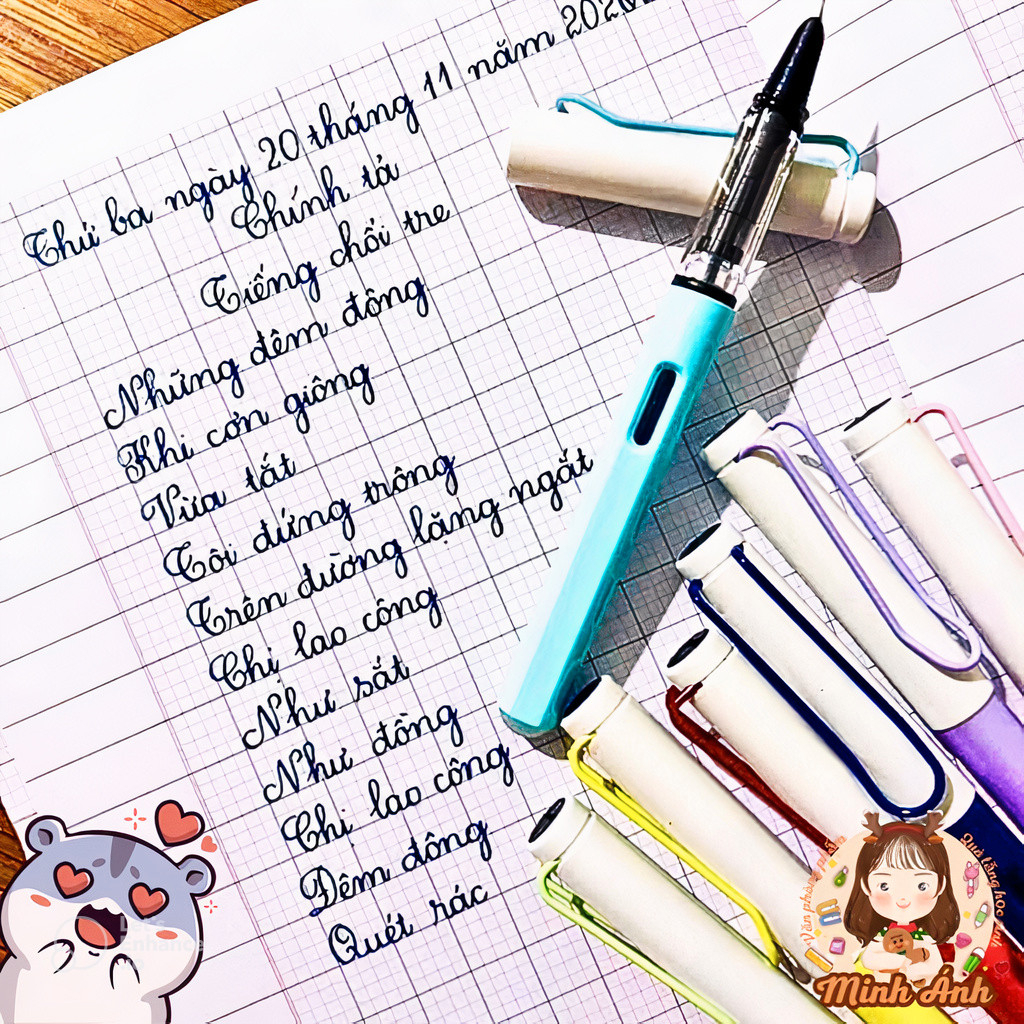 Thứ ba ngày 20 tháng 11 năm 2020
Chính tả
Tiếng chổi tre
Những đêm đông
Khi cơn giông
Vừa tắt
Tôi đứng trông
Trên đường lặng ngắt
Chị lao công
Như sắt
Như đồng
Chị lao công
Đêm đông
Quét rác
Enhance
Văn phòng phẩm
Quà tặng học sinh
Minh Ánh